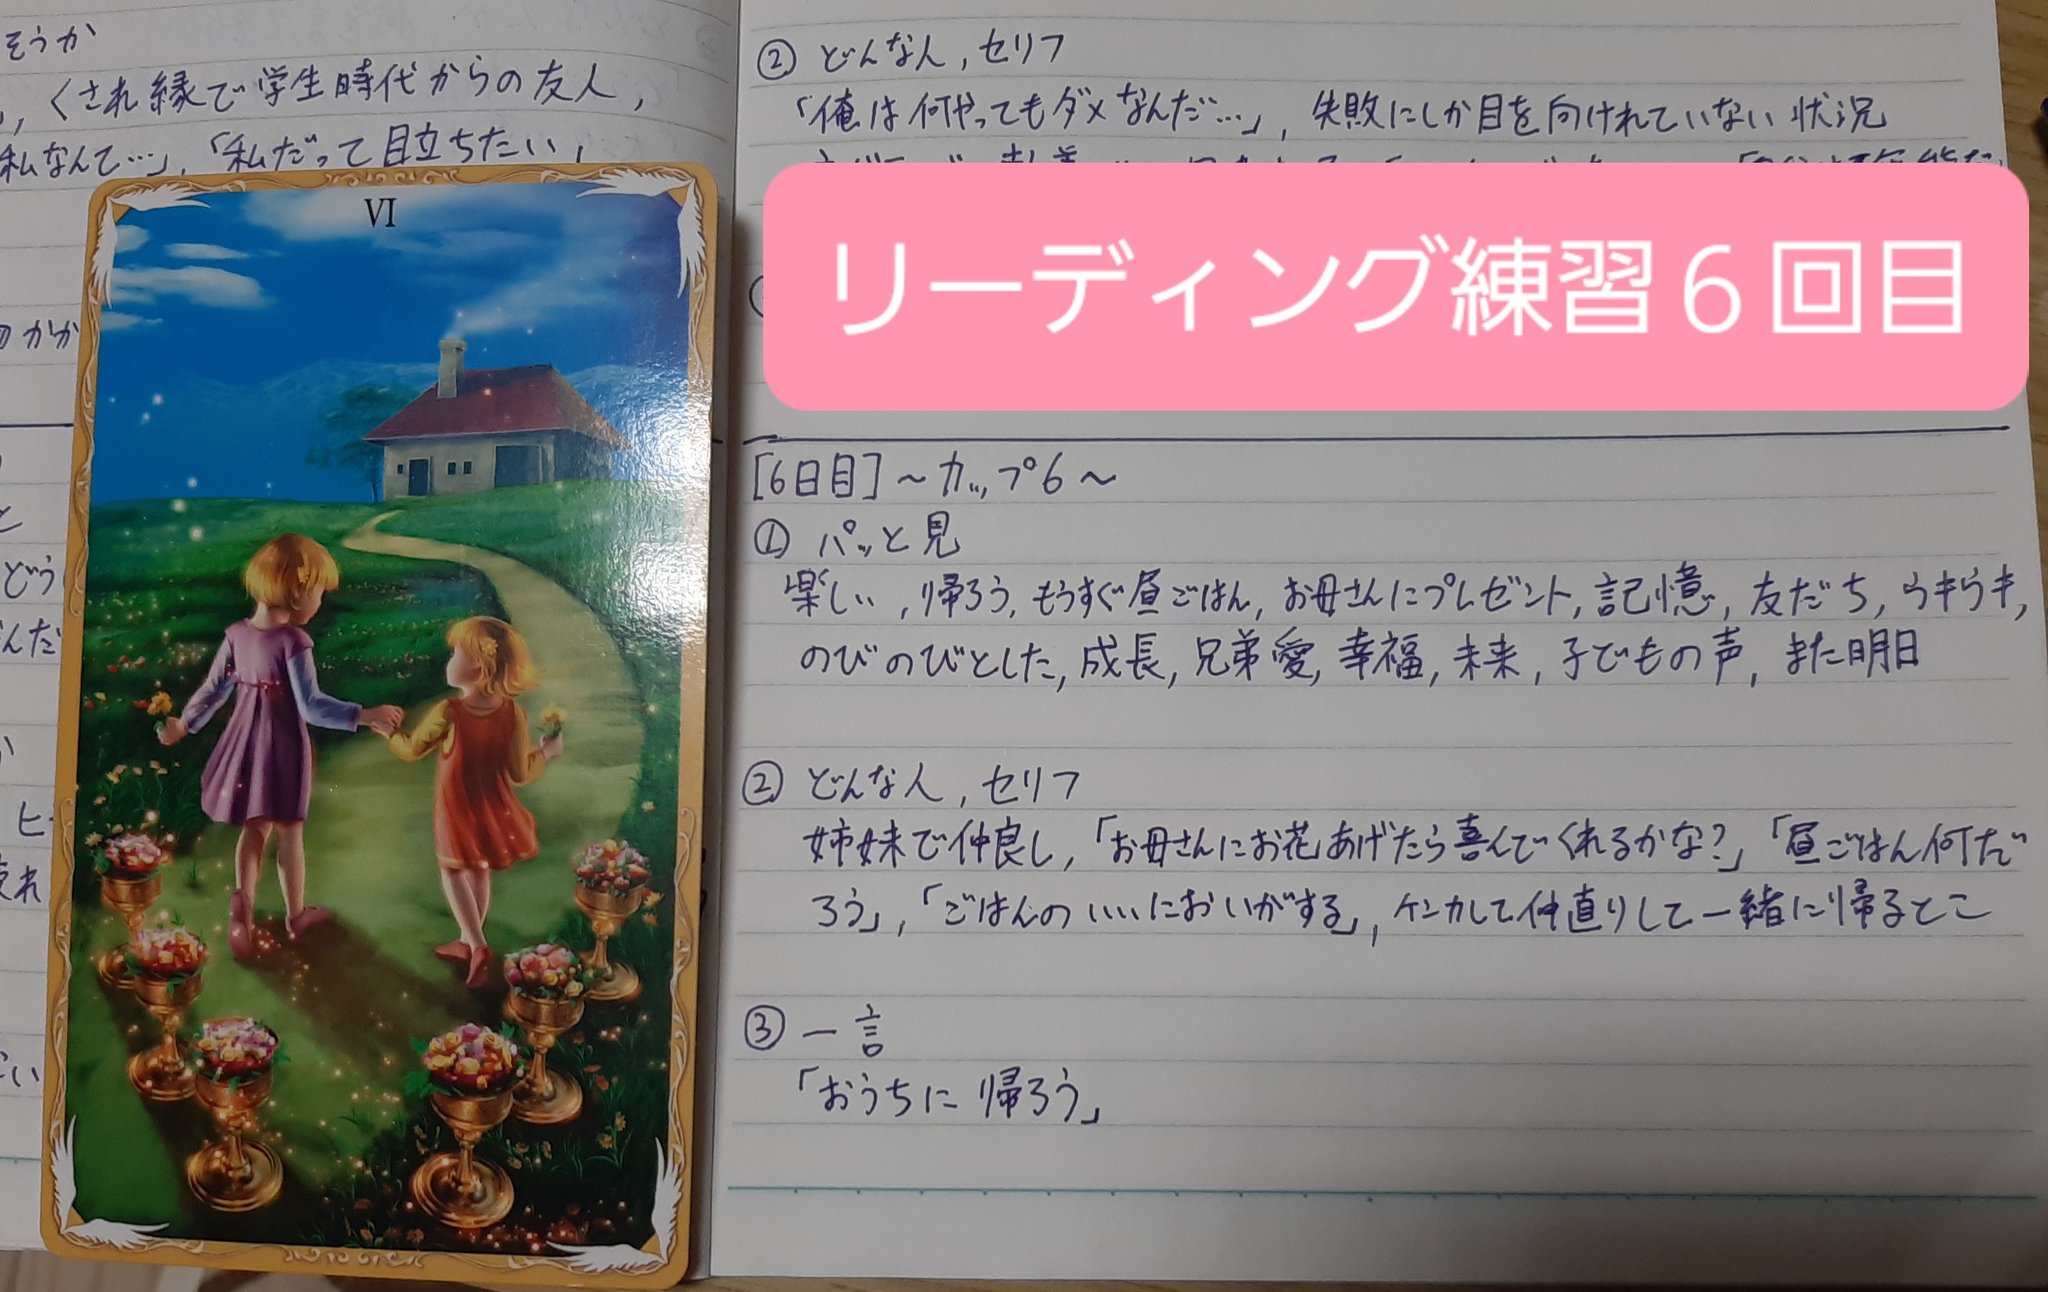 そうか
くされ縁で学生時代からの友人,
私なんて…」,「私だって目立ちたい」
かか
と
どう
んだ
か
ヒ
疲れ
VI
② どんな人, セリフ
「俺は何やってもダメなんだ…」, 失敗にしか目を向けれていない状況
リーディング練習6回目
[6日目]~カップ6~
① パッと見
楽しい, 帰ろう, もうすぐ昼ごはん, お母さんにプレゼント, 記憶, 友だち, ウキウキ,
のびのびとした, 成長, 兄弟愛, 幸福, 未来, 子どもの声, また明日
② どんな人, セリフ
姉妹で仲良し,「お母さんにお花あげたら喜んでくれるかな?」「昼ごはん何だ
ろう」,「ごはんのいいにおいがする」, ケンカして仲直りして一緒に帰るとこ
③ 一言
「おうちに 帰ろう」